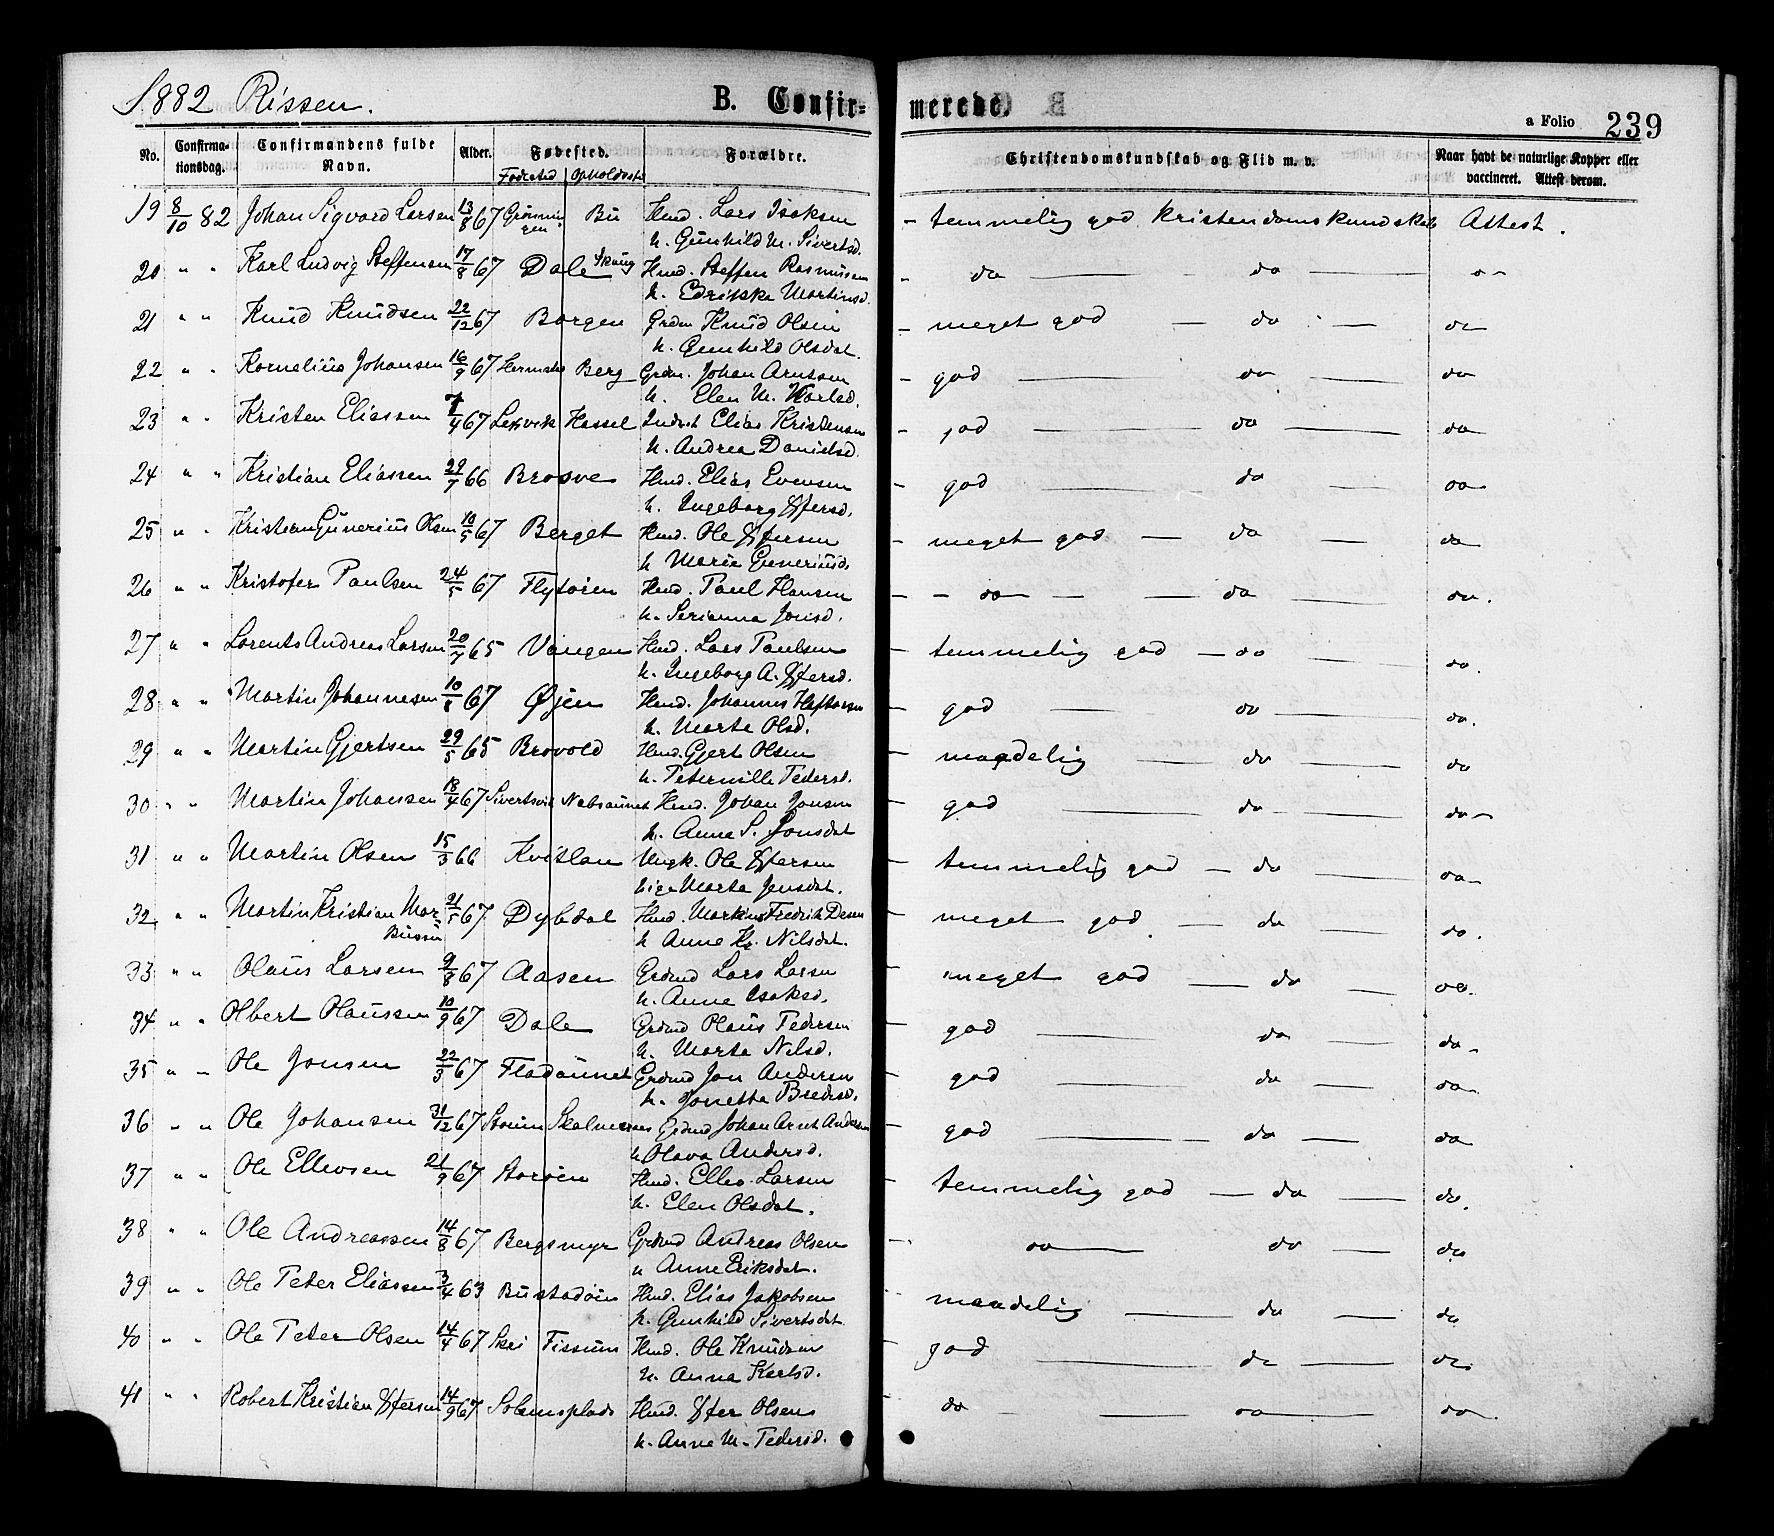 1882 Rissen. B. Confir- merede. a Folio 239
No. Confirma-tionsdag. Confirmandens fulde Navn. Alder. Fødested. Forældre. Christendomskundskab og Flid m. v. Naar havt de naturlige Kopper eller vaccineret. Attest derom.
Fødested Opholdssted
19 8/10 82 Johan Sigvard Larsen 13/8 67 Grønningen Bu Hmd. Lars Isaksen - temmelig god kristendomskundskab Attest.
h. Gunhild M. Sivertsd.
20 " " Karl Ludvig Steffensen 17/8 67 Dale Skaug Hmd. Steffen Rasmussen - do — do — do
h. Edrikke Martinsd.
21 " " Knud Knudsen 22/12 67 Borgen Grdm Knud Olsen - meget god — do — do
h. Gunhild Olsdat.
22 " " Kornelius Johansen 16/9 67 Berg Grdm. Johan Arntsen - god — do — do
h. Elen M. Karlsd.
23 " " Kristen Eliassen 7/4 67 Lexvik Hassel Inderst Elias Kristensen - god — do — do
h. Andrea Danielsd.
24 " " Kristian Eliassen 29/7 66 Brosve Hmd. Elias Evensen - god — do — do
h. Ingeborg Iffersd.
25 " " Kristian Gunerius Olsen 10/5 67 Berget Hmd. Ole Iffersen - meget god — do — do
h Marie Guneriusd.
26 " " Kristofer Paulsen 24/5 67 Flytøien Hmd. Paul Hansen - - do — - do — do.
h. Serianna Jonsd.
27 " " Lorents Andreas Larsen 20/7 65 Vangen Hmd. Lars Paulsen - temmelig god — do — do.
h. Ingeborg A. Iffersd.
28 " " Martin Johannesen 10/ 67 Øjen Hmd. Johannes Haftorsen - god — do — do.
h. Marta Olsd.
29 " " Martin Gjertsen 29/5 65 Brovold Hmd. Gjert Olsen - maadelig — do — do
h. Peternille Pedersd.
30 " " Martin Johansen 18/4 67 Sivertsvik Nebsaunet Hmd. Johan Jonsen - god — do — do-
h. Anna S. Jonsdat
31 " " Martin Olsen 15/3 66 Kvitlan Ungk. Ole Iffersen - temmelig god — do — do-
Pige Marta Jensdat.
32 " " Martin Kristian Mar- 21/5 67 Dybdal Hmd. Markus Fredrik - meget god — do — do.
h Anne Kr. Nilsdat.
33 " " Olaus Larsen 9/8 67 Aasen Grdmd Lars Larsen - meget god — do — do.
h. Anne Isaksd.
34 " " Olbert Olaussen 10/9 67 Dale Grdmd Olaus Pedersen - god — do — do-
h. Marta Nilsd.
35 " " Ole Jonsen 22/3 67 Fladaunet Grdmd Jon Andersen - god — do — do-
h. Jonetta
36 " " Ole Johansen 31/12 67 Skalmernes Grdmd Johan Arnt Andersen - god — do — do
h Olava Andersd.
37 " " Ole Ellevsen 21/9 67 Storøen Hmd. Ellev Larsen - temmelig god — do — do.
h. Elen Olsdat.
38 " " Ole Andreassen 14/8 67 Bergsmyr Grdmd Andreas Olsen - do — do — do
h Anne Eriksdat.
39 " " Ole Peter Eliassen 3/4 63 Bustadøien Hmd. Elias Jakobsen maadelig — do — do
h. Gunhild Sivertsdat
40 " " Ole Peter Olsen 14/4 67 Skei Fissum Hmd. Ole Knudsen god — do — do.
h. Anna Karlsd.
41 " " Robert Kristian Iffersen 14/9 67 Solemsplads Hmd. Iffer Olsen do - — do — do-
h. Anne M. Pedersd.